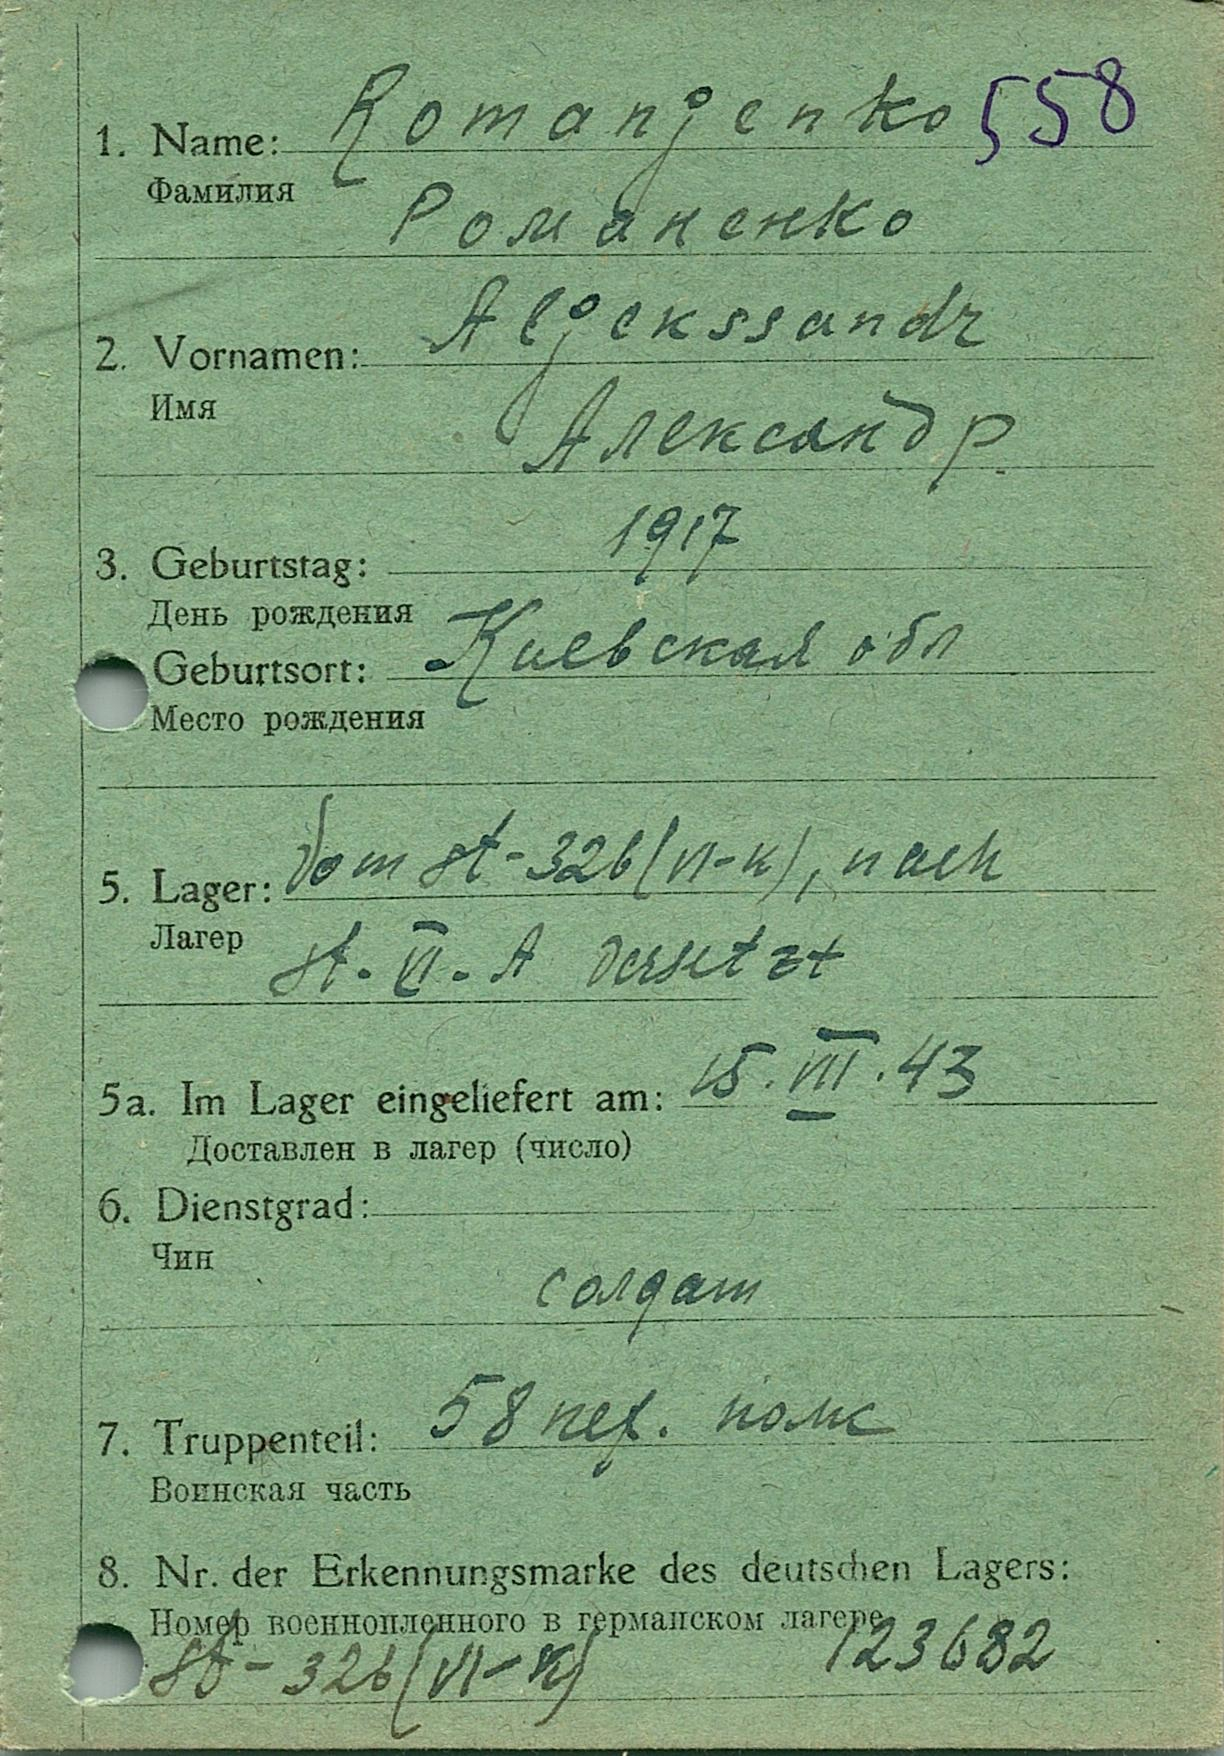 1. Name: Romanjenko 558
Фамилия
Романенко
2. Vornamen: Aljekssandr
Имя
Александр.
3. Geburtstag: 1917
День рождения
Geburtsort: Киевская обл
Место рождения
5. Lager: Vom St-326(VI-K), nach
Лагер St. VI. A versetzt
5a. Im Lager eingeliefert am: 15.VIII.43
Доставлен в лагер (число)
6. Dienstgrad:
Чин
солдат
7. Truppenteil: 58 пех. полк
Воинская часть
8. Nr. der Erkennungsmarke des deutschen Lagers:
Номер военнопленного в германском лагере
St-326(VI-K) 123682